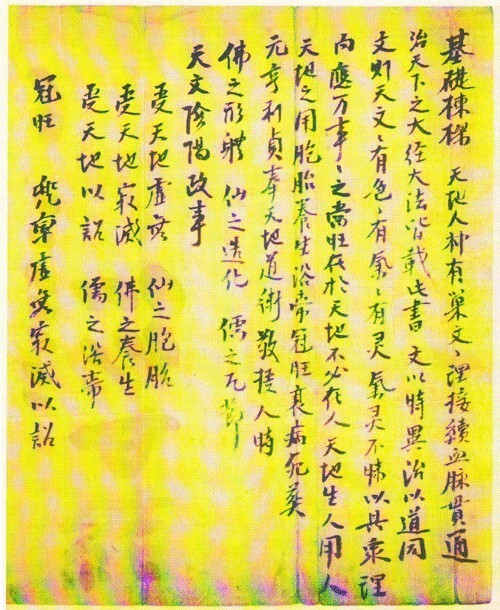 基礎棟樑 天地人神有巢文ヽ理接續血脉貫通
治天下之大经大法皆載此書 文以時異治以道同
文則天文ヽ有色ヽ有氣ヽ有灵 氣灵不昧以具衆理
而應万事ヽ之當旺在於天地不必在人天地生人用人
天地之用胞胎養生浴帶冠旺衰病死葬
元亨利貞奉天地道術敬授人時
佛之形體 仙之造化 儒之凡節
天文陰陽政事
受天地虛無 仙之胞胎
受天地寂滅 佛之養生
受天地以詔 儒之浴帶
冠旺 兜率虛無寂滅以詔